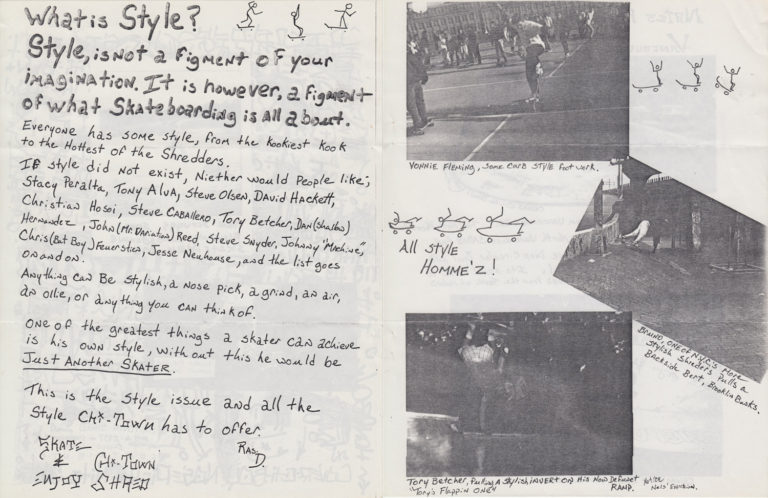 What is Style?
Style, is not a figment of your
imagination. It is however, a figment
of what Skateboarding is all about.
Everyone has some style, from the Kookiest Kook
to the Hottest of the Shredders.
If style did not exist, Niether would People like;
Stacy Peralta, Tony Alva, Steve Olsen, David Hackett,
Christian Hosoi, Steve Caballero, Tory Betcher, Dan (Shaboo)
Hernandez, John (Mr. Variation) Reed, Steve Snyder, Johnny "Machine",
Chris (Bat Boy) Feuersten, Jesse Neuhouse, and the list goes
on and on.
Anything can Be stylish, a nose pick, a grind, an air,
an ollie, or anything you can think of.
One of the greatest things a skater can achieve
is his own style, with out this he would be
Just Another Skater.
This is the Style issue and all the
Style Chi-Town has to offer.
Ras D.
Skate
&
Enjoy
Chi-Town
Shred
Vonnie Fleming, some curb style foot work.
All style
Homme'z!
Bruno, one of N.Y.C.'s More
Stylish Shreders Pulls a
Backside Bert, Brooklin Banks.
Tory Betcher, Pulling A Stylish invert on His Now Defunct
"Tory's Flappin ONE" RAMP.